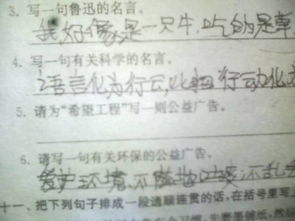 3. 写一句鲁迅的名言。
我好像是一只牛，吃的是草
4. 写一句有关科学的名言。
语言化为行动，比把行动化
5. 请为“希望工程”写一则公益广告。
6. 请写一句有关环保的公益广告。
爱护环境，不随地吐痰，不乱
十一、把下列句子排成一段通顺连贯的话，在括号里写